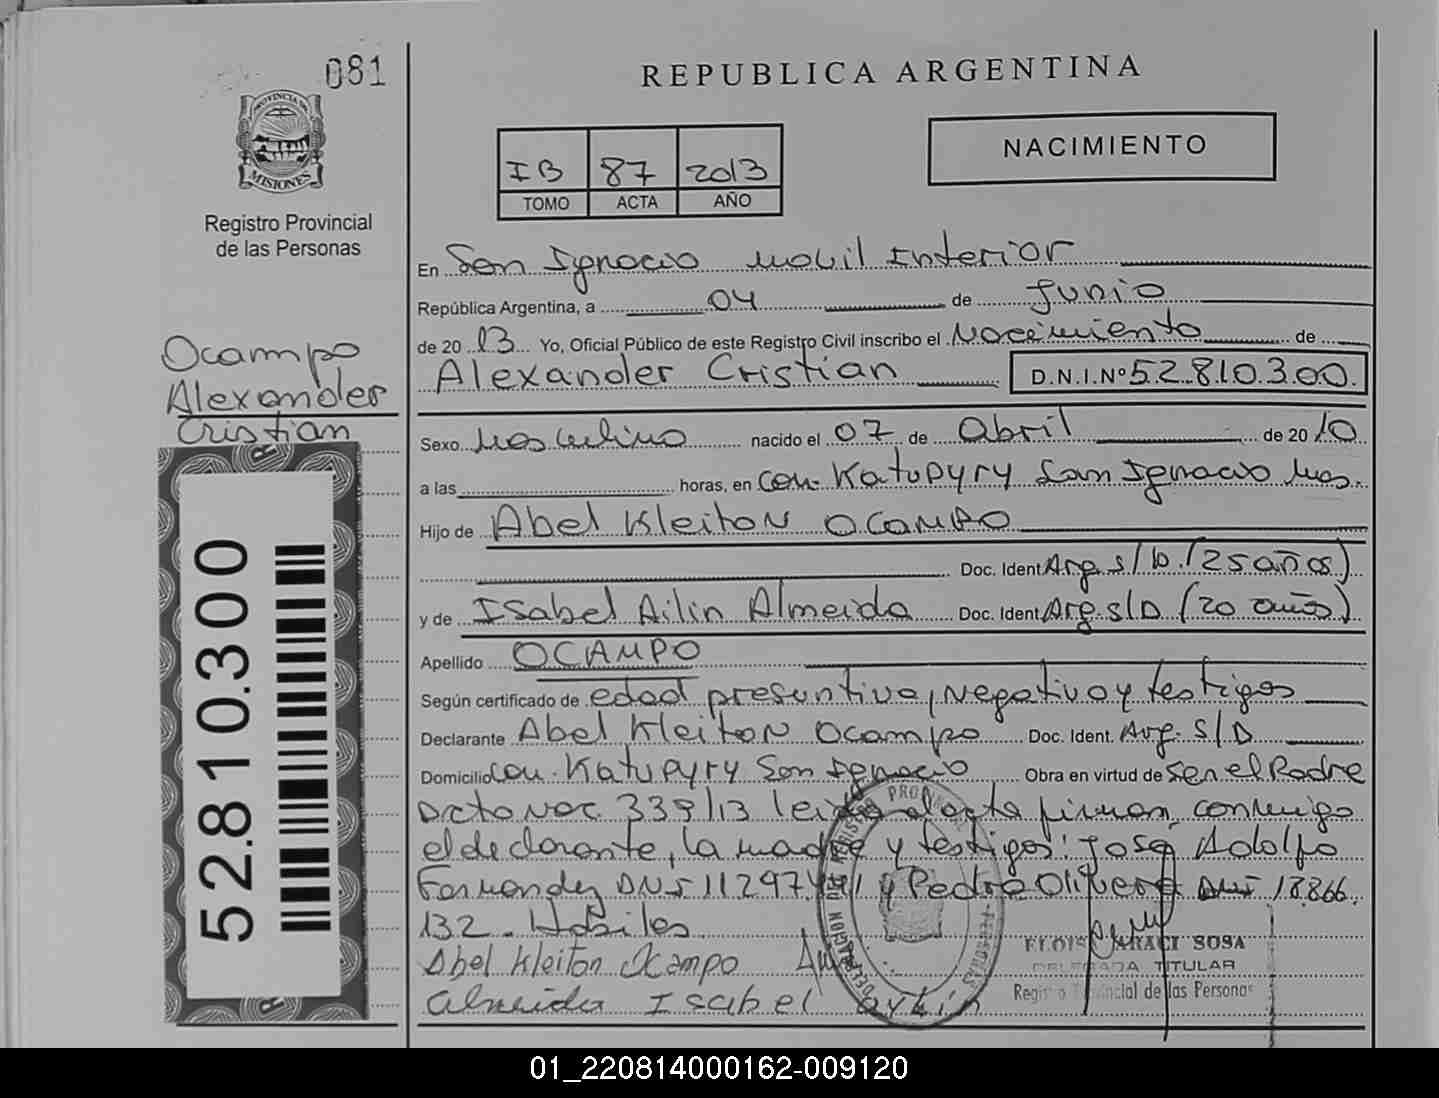 081
PROVINCIA DE
MISIONES
Registro Provincial
de las Personas
Ocampo
Alexander
Cristian
52.810.300
REPUBLICA ARGENTINA
IB 87 2013
TOMO ACTA AÑO
NACIMIENTO
En San Ignacio movil Interior
República Argentina, a 04 de Junio
de 20 13 Yo, Oficial Público de este Registro Civil inscribo el Nacimiento de
Alexander Cristian D.N.I.Nº 52.810.300.
Sexo Masculino nacido el 07 de abril de 20 10
a las horas, en Com. Katupyry San Ignacio Mns.
Hijo de Abel Kleiton OCAMPO
Doc. Ident Arg. s/D. (25 años)
y de Isabel Ailin Almeida Doc. Ident Arg. s/D (20 años)
Apellido OCAMPO
Según certificado de edad presuntiva, Negativa y testigos
Declarante Abel Kleiton Ocampo Doc. Ident. Arg. S/D
Domicilio Com. Katupyry San Ignacio Obra en virtud de Ser el Padre
Dcto Nac. 339/13 leida el acta firman, conmigo
el declarante, la madre y testigos: Jose Adolfo
Fernandez DNI y Pedro Olivera DNI 18.866.
132. Habiles
Abel Kleiton Ocampo
Almeida Isabel aylin
ARACI SOSA
DELEGADA TITULAR
Registro Provincial de las Personas
01_220814000162-009120